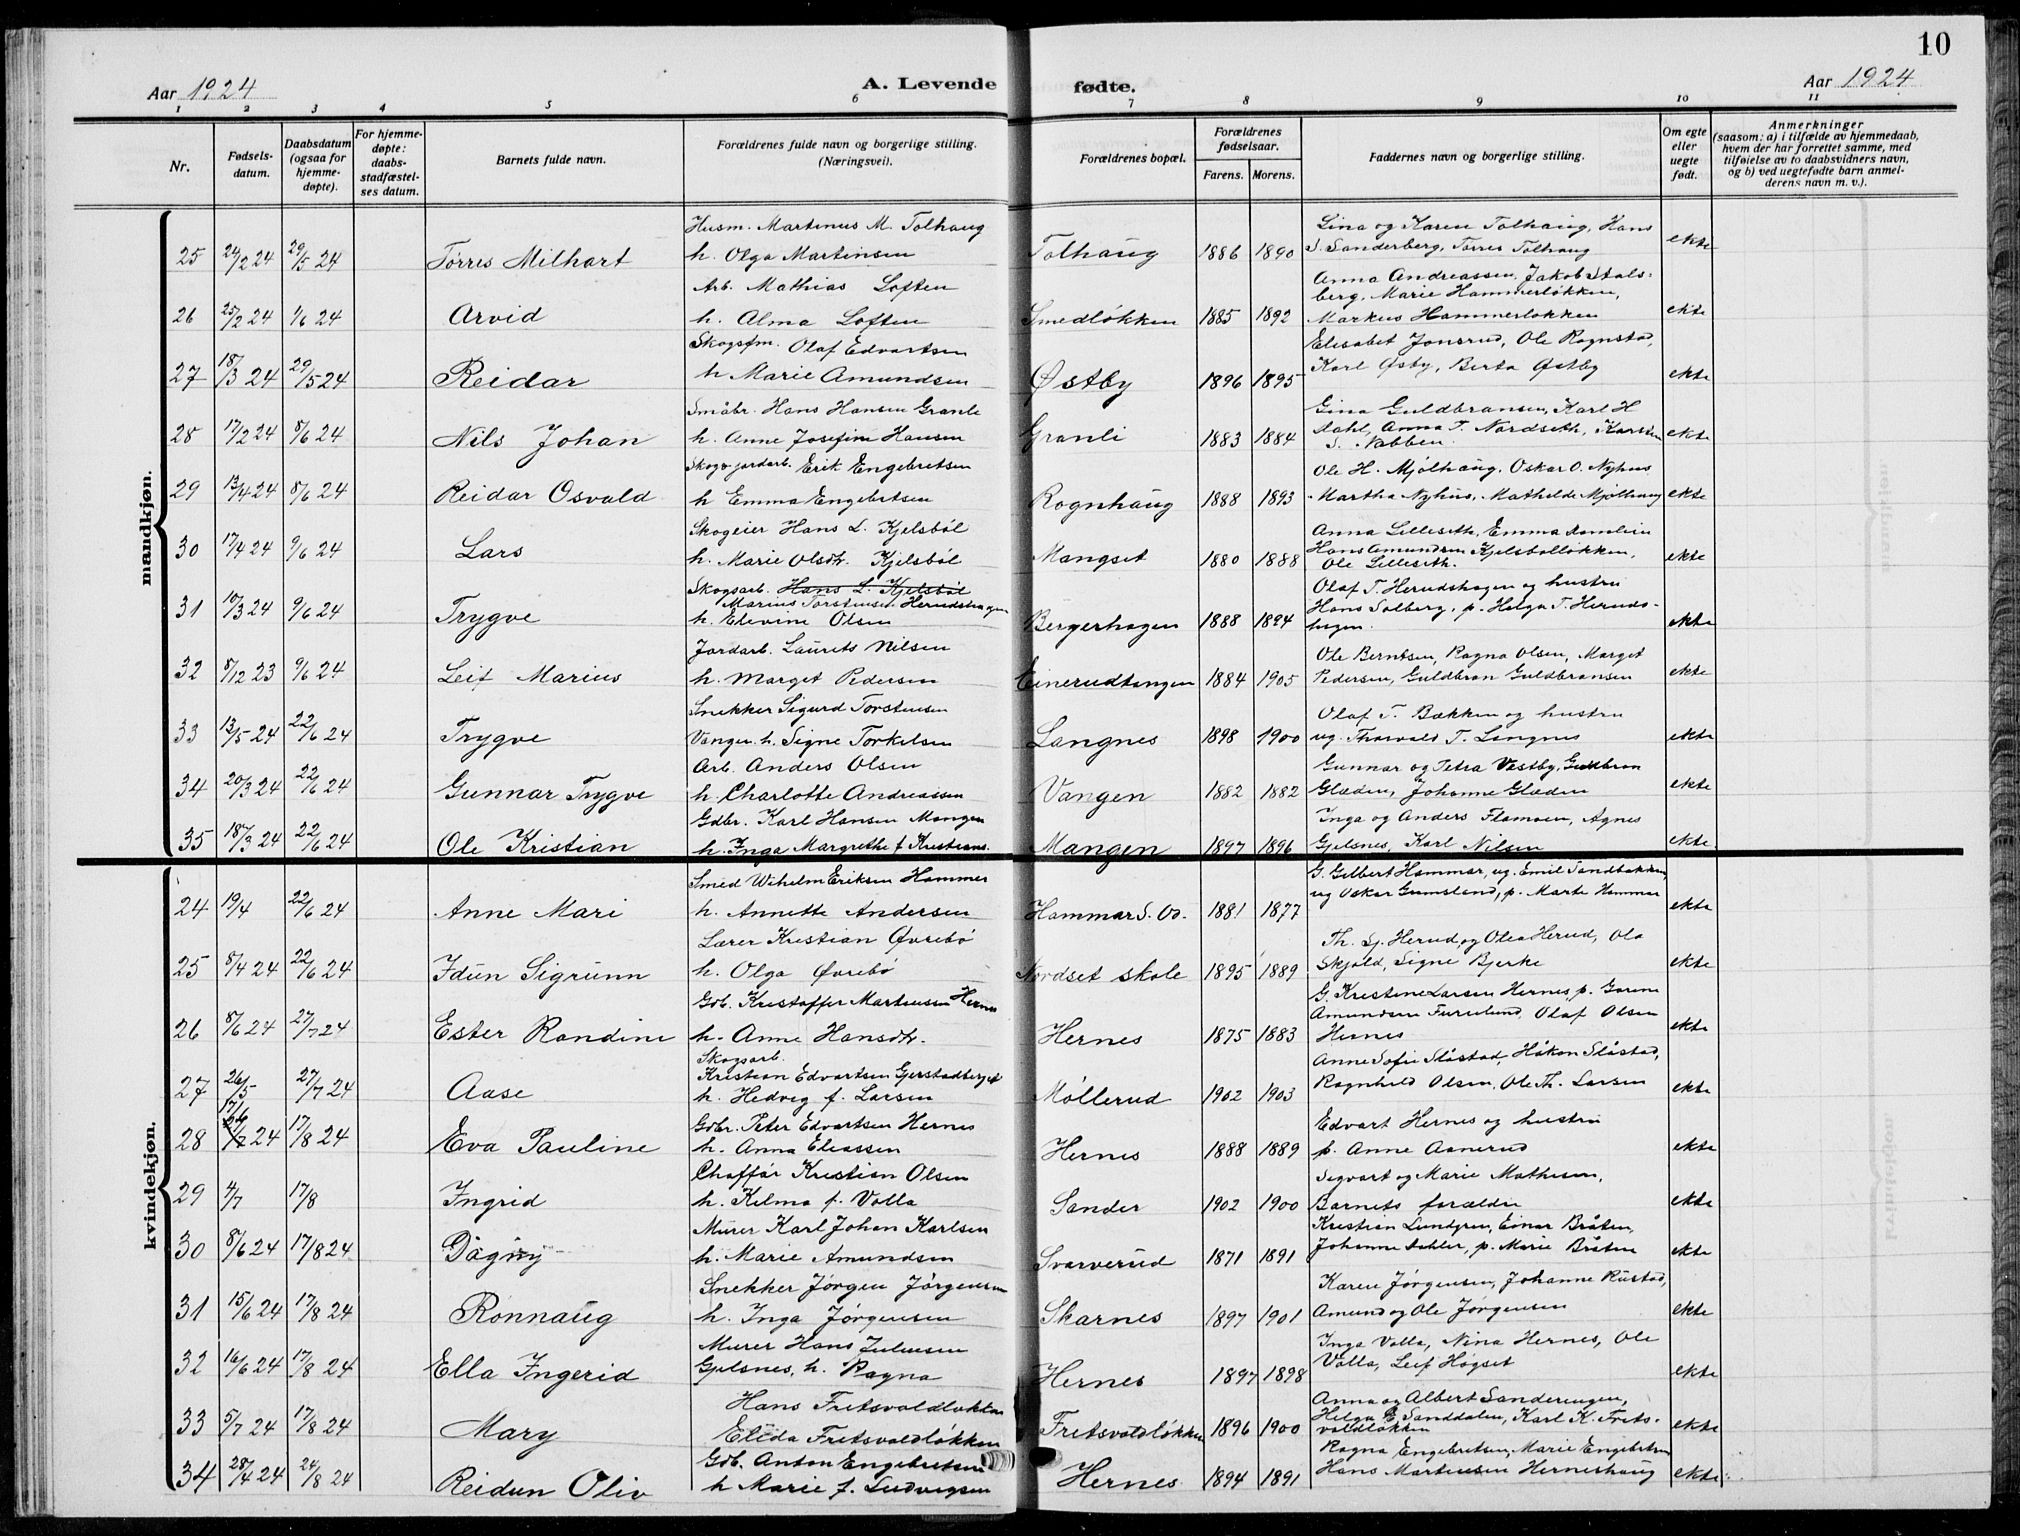 10
Aar 1924 A. Levende fødte. Aar 1924
1 2 3 4 5 6 7 8 9 10 11
Nr.
Fødsels-
datum.
Daabsdatum
(ogsaa for
hjemme-
døpte).
For hjemme-
døpte:
daabs-
stadfæstel-
ses datum.
Barnets fulde navn.
Forældrenes fulde navn og borgerlige stilling.
(Næringsvei).
Forældrenes bopæl.
Forældrenes
fødselsaar.
Farens. Morens.
Faddernes navn og borgerlige stilling.
Om egte
eller
uegte
født.
Anmerkninger
(saasom: a) i tilfælde av hjemmedaab,
hvem der har forrettet samme, med
tilføielse av to daabsvidners navn,
og b) ved uegtefødte barn anmel-
derens navn m. v.).
mandkjøn.
Husm. Martinus M. Tolhaug
Lina og Karen Tolhaug, Hans
25 24/2 24 29/5 24 Torris Milhart h. Olga Martinsen Tolhaug 1886 1890 S. Sanderberg, Torris Tolhaug ekte
Arb. Mathias Loften
Anna Andreassen, Jakob Stals-
berg, Marie Hammerløkken,
26 25/2 24 1/6 24 Arvid h. Alma Loften Smedløkken 1885 1892 Markus Hammerløkken ekte
Skogsfm. Olaf Edvartsen
Elisabet Jonsrud, Ole Rognstad,
27 18/3 24 29/5 24 Reidar h Marie Amundsen Østby 1896 1895 Karl Øsby, Berta Østby ekte
Småbr. Hans Hansen Granli
Gina Guldbransen, Karl H
28 17/2 24 8/6 24 Nils Johan h. Anne Josefine Hansen Granli 1883 1884 Dahl, Anna T. Nordseth, Karsten ekte
S. Nabben
Skog o jordarb. Erik Engebretsen
Ole H. Mjølhaug, Oskar O. Nyhus
29 13/4 24 8/6 24 Reidar Osvald h Emma Engebretsen Rognhaug 1888 1893 Martha Nyhus, Mathilde Mjølhaug ekte
Skogeier Hans L. Kjelsbøl
Anna Lilleseth, Emma
30 17/4 24 9/6 24 Lars h. Marie Olsdtr. Kjelsbøl Mangset 1880 1888 Hans Amundsen Kjelsbølløkken, ekte
Ole Lilleseth.
Skogsarb. Hans L. Kjelsbøl
Marius Torstensen Herudshagen
Olaf T. Herudshagen og hustru
31 10/3 24 9/6 24 Trygve h. Elevine Olsen Bergerhagen 1888 1894 Hans Solberg, p. Helga T. Heruds- ekte
hagen.
Jordarb. Laurits Nilsen
Ole Berntsen, Ragna Olsen, Marget
32 8/12 23 9/6 24 Leif Marius h. Marget Pedersen Einerudtangen 1884 1905 Pedersen, Guldbran Guldbransen ekte
Snekker Sigurd Torstensen
Olaf T. Bækken og hustru
33 13/5 24 22/6 24 Trygve Vangen h. Signe Torkelsen Langnes 1898 1900 ug. Thorvald T. Langnes ekte
Arb. Anders Olsen
Gunnar og Petra Vestby, Guldbran
34 20/3 24 22/6 24 Gunnar Trygve h. Charlotte Andreassen Vangen 1882 1882 Glæden, Johanne Glæden ekte
Gdbr. Karl Hansen Mangen
Inga og Anders Flamoen, Agnes
35 18/3 24 22/6 24 Ole Kristian h. Inga Margrethe f Kristians. Mangen 1897 1896 Gjelsnes, Karl Nilsen ekte
kvindekjøn.
Smed Wihelm Eriksen Hammer
G. Gilbert Hammar, ug. Emil Sandbakken,
ug Oskar Grumsland, p. Marte Hammer
24 19/4 22/6 24 Anne Mari h. Annette Andersen Hammar S. Od. 1881 1877 ekte
Lærer Kristian Øvrebø
Th. Lj. Herud, og Olea Herud, Ola
25 8/4 24 22/6 24 Idun Sigrunn h. Olga Øvrebø Nordset skole 1895 1889 Skjold, Signe Bjerke ekte
Gdb. Kristoffer Martinsen Hernes
G. Kristine Larsen Hernes, p. Gorine
Amundsen Furulund, Olaf Olsen
26 8/6 24 27/7 24 Ester Randine h. Anne Hansdtr. Hernes 1875 1883 Hernes ekte
Skogsarb.
Kristian Edvartsen Gjerstadberget
Anne Sofie Slåstad, Håkon Slåstad,
27 26/5 27/7 24 Aase h. Hedvig f. Larsen Møllerud 1902 1903 Ragnhild Olsen, Ole Th. Larsen ekte
Gdbr. Peter Edvartsen Hernes
Edvart Hernes og hustru
28 17/6 24 17/8 24 Eva Pauline h. Anna Eliassen Hernes 1888 1889 p. Anne Aanerud ekte
Chaffør Kristian Olsen
Segvart og Marie Mathisen,
29 4/7 17/8 Ingrid h. Kilma f. Volla Sander 1902 1900 Barnets forældre ekte
Murer Karl Johan Karlsen
Kristian Lundgren, Einar Bråten,
30 8/6 24 17/8 24 Dagny h. Marie Amundsen Svarverud 1871 1891 Johanne Dahler, p. Marie Bråten ekte
Snekker Jørgen Jørgensen
Karen Jørgensen, Johanne Rustad,
31 15/6 24 17/8 24 Rønnaug h. Inga Jørgensen Skarnes 1897 1901 Amund og Ole Jørgensen ekte
Murer Hans Juliussen
Inga Volla, Nina Hernes, Ole
32 16/6 24 17/8 24 Ella Ingerid Gjelsnes, h. Ragna Hernes 1897 1898 Volla, Leif Høgset ekte
Hans Fritsvoldløkken
Anna og Albert Sanderengen,
33 5/7 24 17/8 24 Mary Elida Fritsvoldløkken Fritsvoldløkken 1896 1900 Helga Sanddalen, Karl K. Frits- ekte
voldløkken
Gdb. Anton Engebretsen
Ragna Engebretsen, Marie Engebretsen
34 28/4 24 24/8 24 Reidun Oliv h Marie f. Ludvigsen Hernes 1894 1891 Hans Martinsen Herneshaug ekte